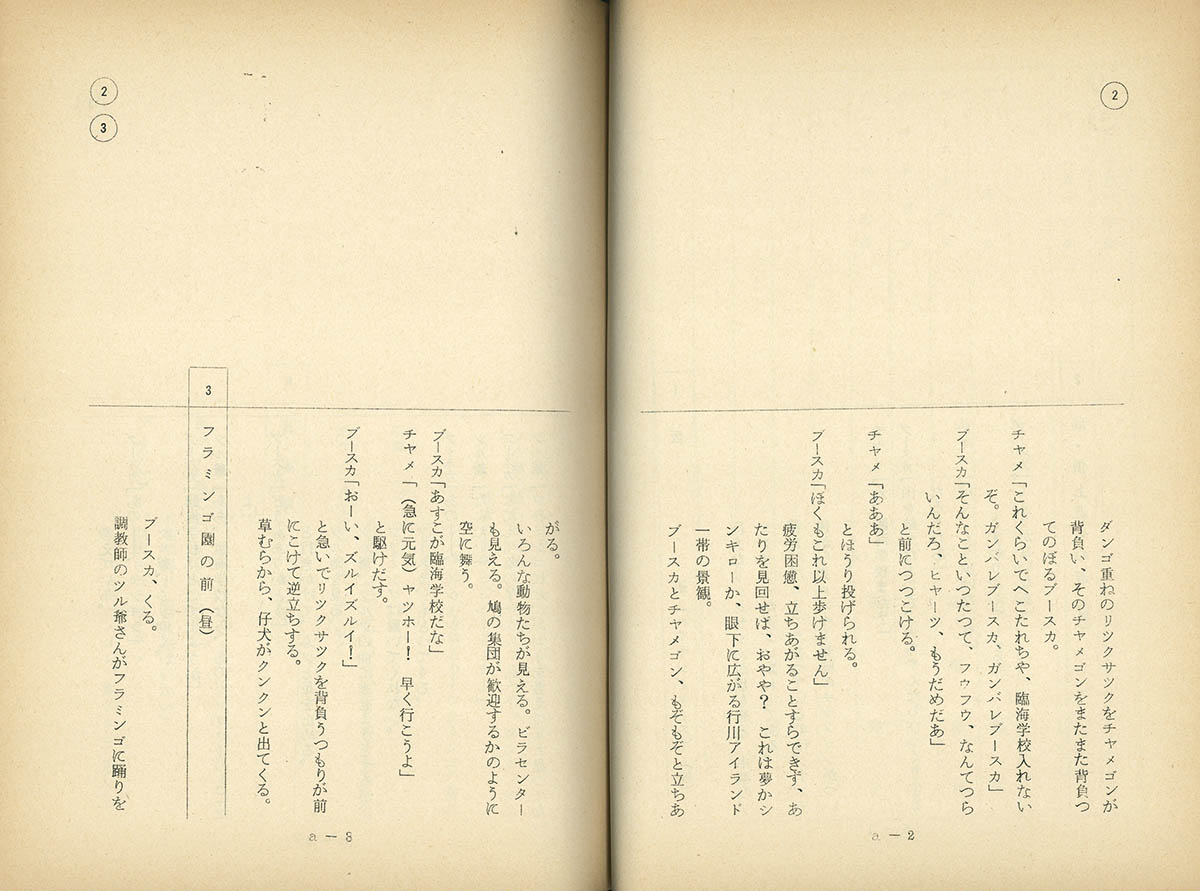 2
ダンゴ重ねのリツクサツクをチャメゴンが
背負い、そのチャメゴンをまたまた背負つ
てのぼるブースカ。
チャメ「これくらいでへこたれちや、臨海学校入れない
ぞ。ガンバレブースカ、ガンバレブースカ」
ブースカ「そんなこといつたつて、フゥフウ、なんてつら
いんだろ、ヒャーツ、もうだめだあ」
と前につつこける。
チャメ「あああ」
とほうり投げられる。
ブースカ「ぼくもこれ以上歩けません」
疲労困憊、立ちあがることすらできず、あ
たりを見回せば、おやや？　これは夢かシ
ンキローか、眼下に広がる行川アイランド
一帯の景観。
ブースカとチャメゴン、もぞもぞと立ちあ
a－2
2
3
がる。
いろんな動物たちが見える。ビラセンター
も見える。鳩の集団が歓迎するかのように
空に舞う。
ブースカ「あすこが臨海学校だな」
チャメ「（急に元気）ヤツホー！　早く行こうよ」
と駆けだす。
ブースカ「おーい、ズルイズルイ！」
と急いでリツクサツクを背負うつもりが前
にこけて逆立ちする。
草むらから、仔犬がクンクンと出てくる。
3　フラミンゴ園の前（昼）
ブースカ、くる。
調教師のツル爺さんがフラミンゴに踊りを
a－3